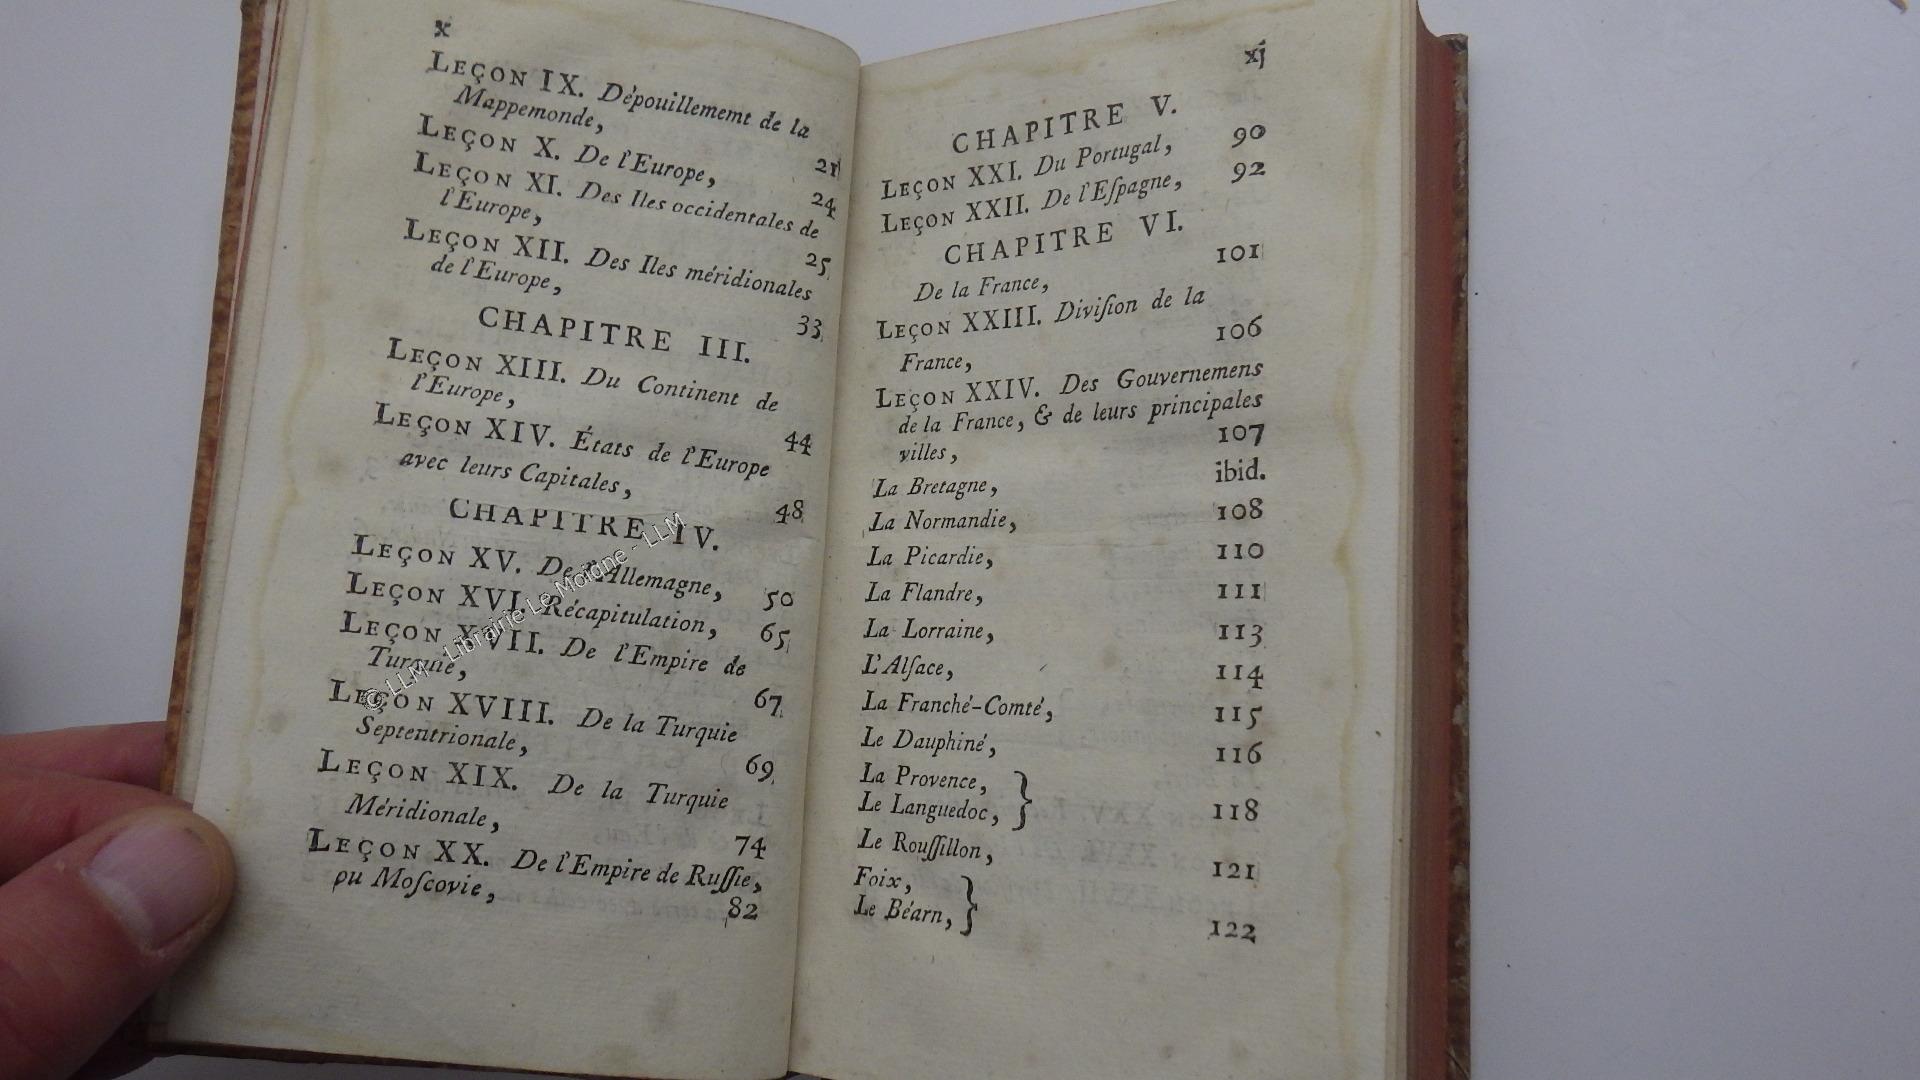 x
LEÇON IX. Dépouillememt de la
Mappemonde, 21
LEÇON X. De l'Europe, 24
LEÇON XI. Des Iles occidentales de
l'Europe, 25
LEÇON XII. Des Iles méridionales
de l'Europe, 33
CHAPITRE III.
LEÇON XIII. Du Continent de
l'Europe, 44
LEÇON XIV. États de l'Europe
avec leurs Capitales, 48
CHAPITRE IV.
LEÇON XV. De l'Allemagne, 50
LEÇON XVI. Récapitulation, 65
LEÇON XVII. De l'Empire de
Turquie, 67
LEÇON XVIII. De la Turquie
Septentrionale, 69
LEÇON XIX. De la Turquie
Méridionale, 74
LEÇON XX. De l'Empire de Ruſſie,
ou Moſcovie, 82
© LLM - Librairie Le Moigne - LLM
xj
CHAPITRE V.
LEÇON XXI. Du Portugal, 90
LEÇON XXII. De l'Eſpagne, 92
CHAPITRE VI.
De la France, 101
LEÇON XXIII. Diviſion de la
France, 106
LEÇON XXIV. Des Gouvernemens
de la France, & de leurs principales
villes, 107
La Bretagne, ibid.
La Normandie, 108
La Picardie, 110
La Flandre, 111
La Lorraine, 113
L'Alſace, 114
La Franché-Comté, 115
Le Dauphiné, 116
La Provence,
Le Languedoc, } 118
Le Rouſſillon, 121
Foix,
Le Béarn, } 122